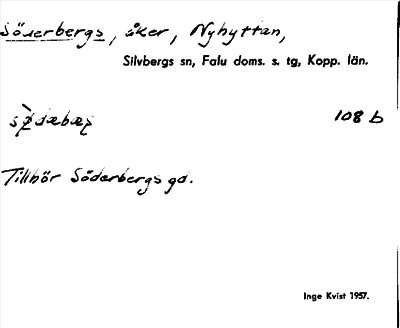 Söderbergs, åker, Nyhyttan,
Silvbergs sn, Falu doms. s. tg, Kopp. län.
108 b
Tillhör Söderbergs gd.
Inge Kvist 1957.